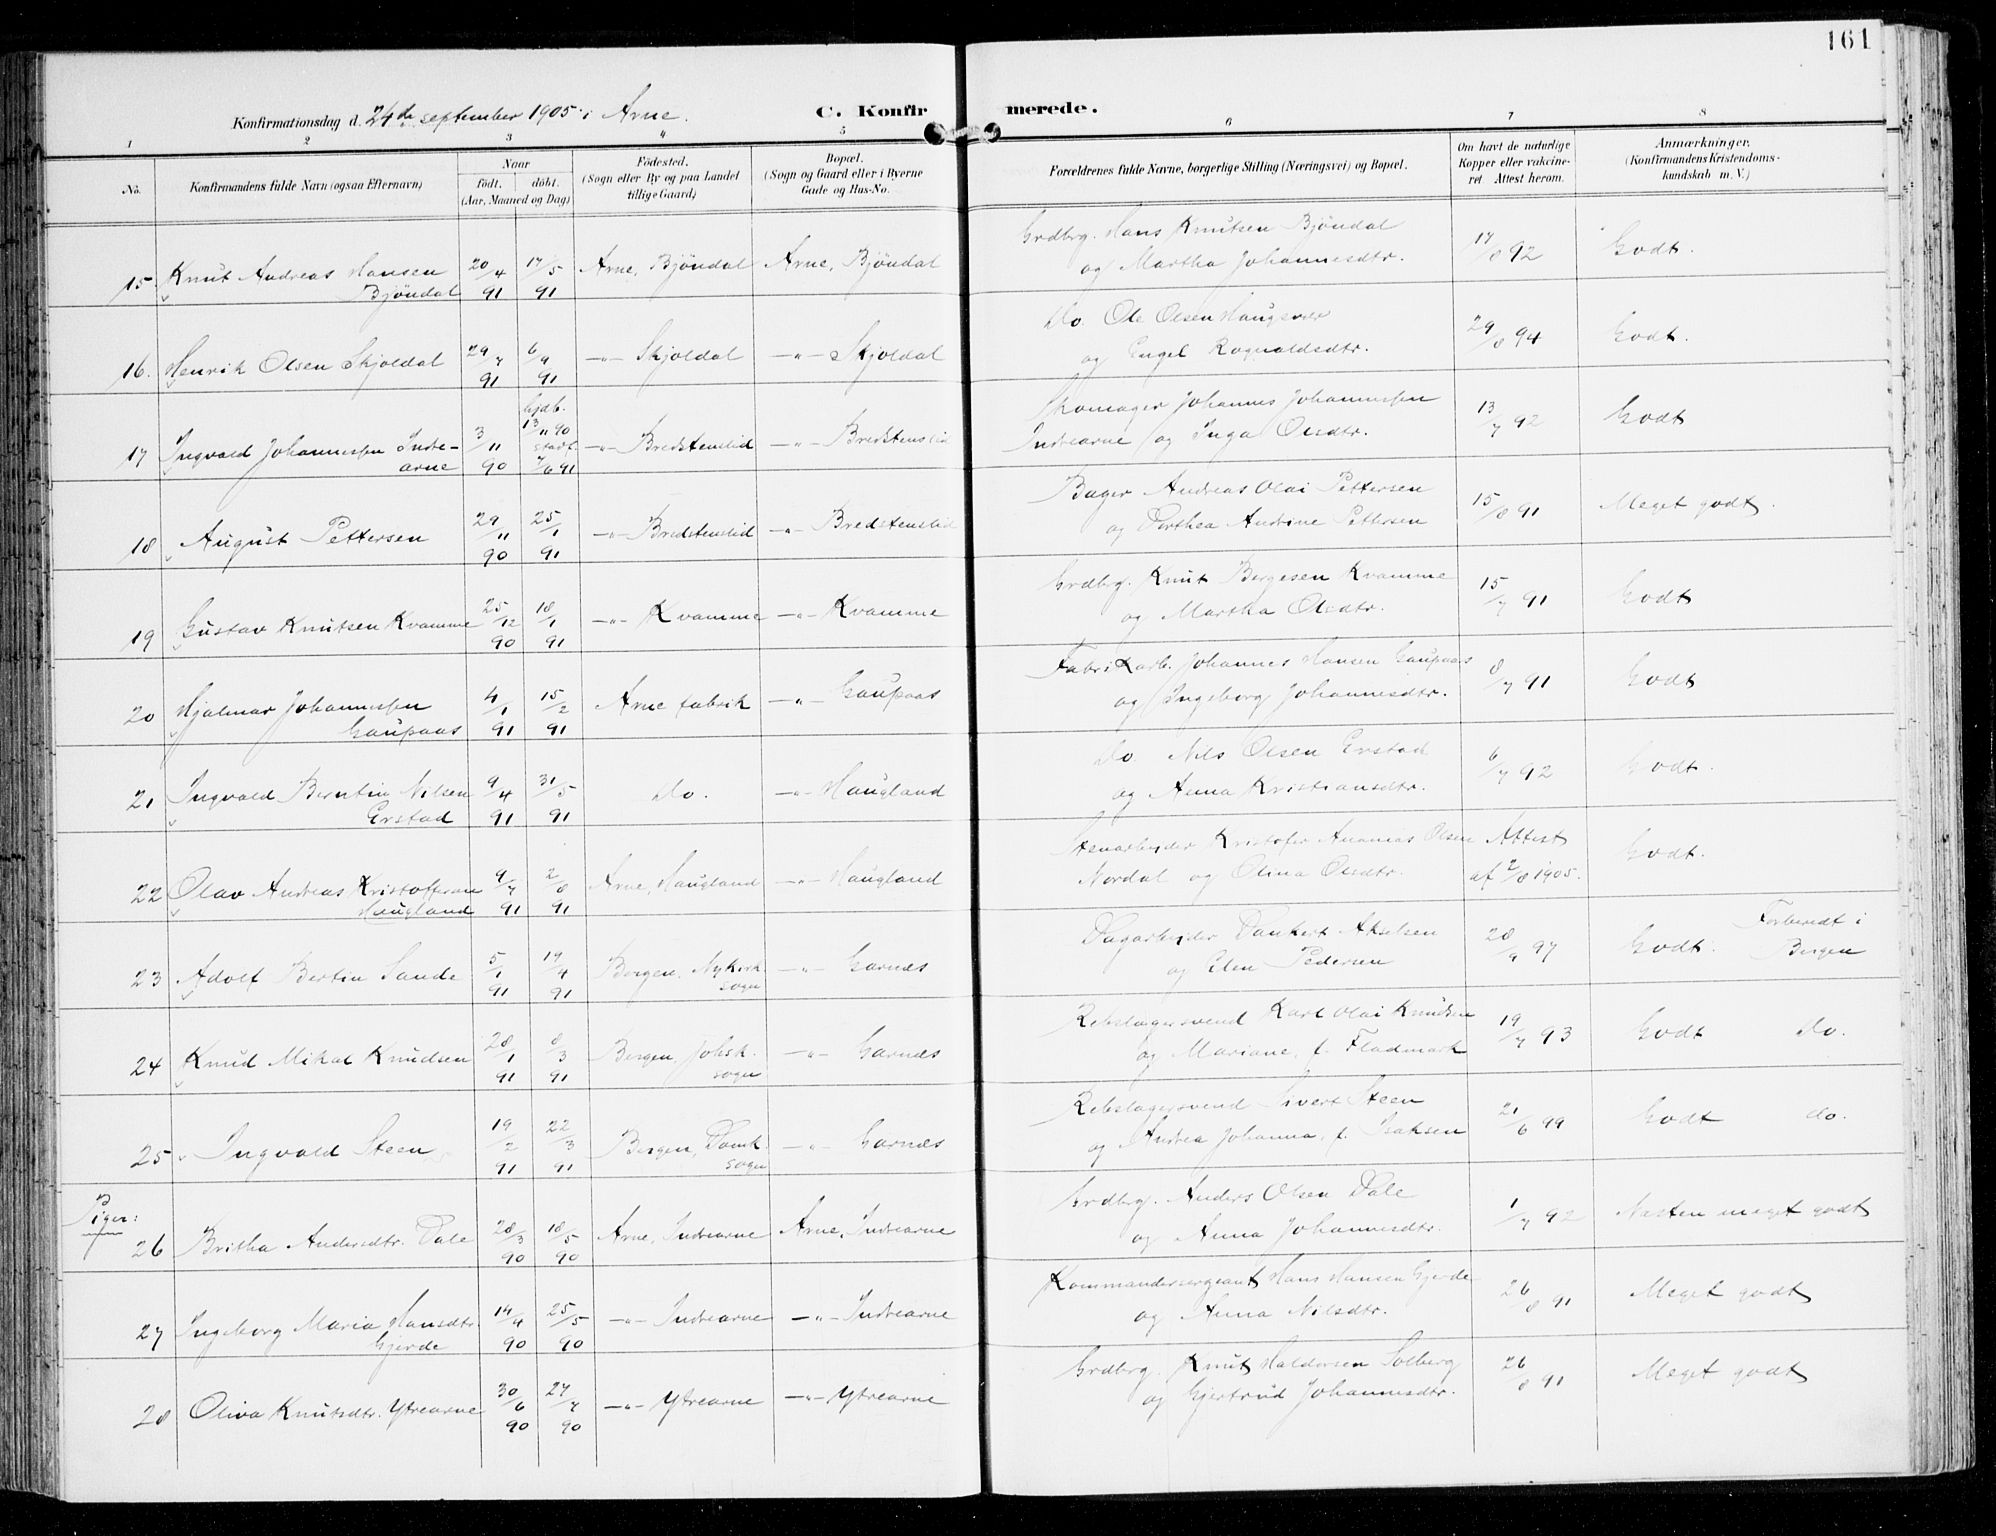 161
Konfirmationsdag d. 24de september 1905 i Arne.
C. Konfirmerede.
1 2 3 4 5 6 7 8
No. Konfirmandens fulde Navn (ogsaa Efternavn) Naar født. døbt. (Aar, Maaned og Dag) Fødested. (Sogn eller By og paa Landet tillige Gaard) Bopæl. (Sogn og Gaard eller i Byerne Gade og Hus-No. Forældrenes fulde Navne, borgerlige Stilling (Næringsvei) og Bopæl. Om havt de naturlige Kopper eller vakcineret Attest herom. Anmærkninger. (Konfirmandens Kristendomskundskab m. V.)
15 Knut Andreas Hansen Bjöndal 20/4 91 17/5 91 Arne, Bjöndal Arne, Bjöndal Grdbrg. Hans Knutsen Bjöndal og Martha Johannesdtr. 17/8 92 Godt.
16. Henrik Olsen Skjoldal 29/7 91 6/9 91 —"— Skjoldal —"— Skjoldal Do. Ole Olsen Haugsvær og Engel Rognaldsdtr. 29/8 94 Godt.
17 Ingvald Johannessen Indrearne 3/11 90 hjdb. 13/11 90 stadf. 7/6 91 —"— Bredstenslid —"— Bredstenslid Skomager Johannes Johannessen Indrearne og Inga Olsdtr. 13/7 92 Godt
18 August Pettersen 29/11 90 25/1 91 —"— Bredstenslid —"— Bredstenslid Bager Andreas Olai Pettersen og Dorthea Andrine Pettersen 15/8 91 Meget godt.
19 Gustav Knutsen Kvamme 25/12 90 18/1 91 —"— Kvamme —"— Kvamme Grdbrg. Knut Børgesen Kvamme og Martha Olsdtr. 15/7 91 Godt
20 Hjalmar Johannessen Gaupaas 4/1 91 15/2 91 Arne fabrik —"— Gaupaas Fabrikarb. Johannes Hansen Gaupaas og Ingeborg Johannesdtr. 8/7 91 Godt
21 Ingvald Berntin Nilsen Erstad 9/4 91 31/5 91 Do. —"— Haugland Do. Nils Olsen Erstad og Anna Kristiansdtr. 6/7 92 Godt.
22 Olav Andreas Kristoffersen Haugland 9/7 91 2/8 91 Arne, Haugland —"— Haugland Stenarbeider Kristofer Ananias Olsen Nordal og Olina Olsdtr. Attest af 2/8 1905. Godt.
23 Adolf Bertin Sande 5/1 91 19/4 91 Bergen, Nykirk. sogn —"— Garnæs Dagarbeider Dankert Akselsen og Elen Pedersen 28/9 97 Godt. Forberedt i Bergen
24 Knud Mikal Knudsen 28/1 91 8/3 91 Bergen, Johsk. sogn —"— Garnæs Rebslagersvend Karl Olai Knudsen og Mariane, f. Fladmark 19/7 93 Godt Do.
25 Ingvald Steen 19/2 91 22/3 91 Bergen, Domk. sogn —"— Garnæs Rebslagersvend Sivert Steen og Andrea Johanna, f. Isaksen 21/6 99 Godt do.
Piger:
26 Britha Andersdtr. Dale 28/3 90 18/5 90 Arne, Indrearne Arne, Indrearne Grdbrg. Anders Olsen Dale og Anna Johannesdtr. 1/7 92 Næsten meget godt
27 Ingeborg Maria Hansdtr. Gjerde 14/4 90 25/5 90 —"— Indrearne —"— Indrearne Kommandersergeant Hans Hansen Gjerde og Anna Nilsdtr. 26/8 91 Meget godt
28 Oliva Knutsdtr. Ytrearne 30/6 90 27/7 90 —"— Ytrearne —"— Ytrearne Grdbrg. Knut Haldorsen Solberg og Gjertrud Johannesdtr. 26/8 91 Meget godt